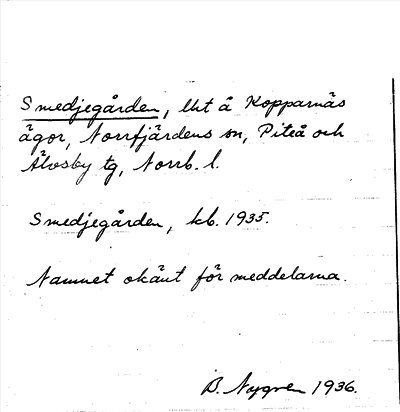 Smedjegården, lht å Kopparnäs
ägor, Norrfjärdens sn, Piteå och
Älvsby tg, Norrb. l.
Smedjegården, kb. 1935.
Namnet okänt för meddelarna.
B. Nygren 1936.